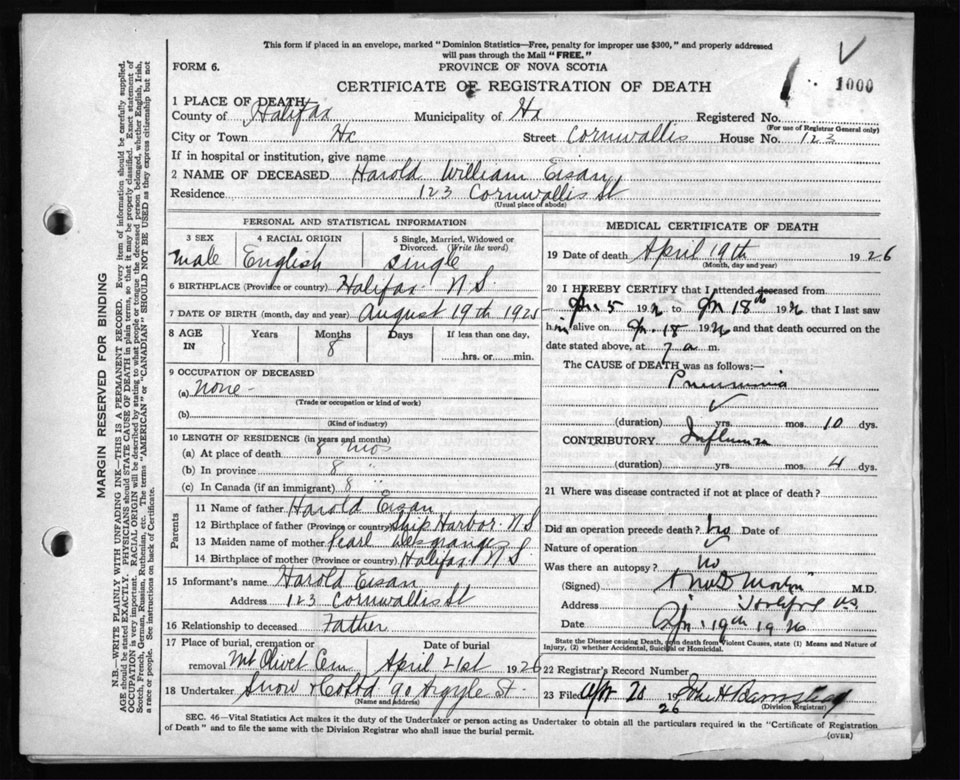 This form if placed in an envelope, marked "Dominion Statistics—Free, penalty for improper use $300," and properly addressed
will pass through the Mail "FREE."
FORM 6.
PROVINCE OF NOVA SCOTIA
1000
CERTIFICATE OF REGISTRATION OF DEATH
1 PLACE OF DEATH
County of Halifax Municipality of Hx Registered No.
(For use of Registrar General only)
City or Town Hx Street Cornwallis House No. 123
If in hospital or institution, give name
2 NAME OF DECEASED Harold William Eisan
Residence 123 Cornwallis St
(Usual place of abode)
PERSONAL AND STATISTICAL INFORMATION
3 SEX
male
4 RACIAL ORIGIN
English
5 Single, Married, Widowed or
Divorced. (Write the word)
single
6 BIRTHPLACE (Province or country) Halifax N.S
7 DATE OF BIRTH (month, day and year) August 19th 1925
8 AGE IN
Years
Months
8
Days
If less than one day,
hrs. or min.
9 OCCUPATION OF DECEASED
(a) None
(Trade or occupation or kind of work)
(b)
(Kind of industry)
10 LENGTH OF RESIDENCE (in years and months)
(a) At place of death 8 mos
(b) In province 8 "
(c) In Canada (if an immigrant) 8 "
Parents
11 Name of father Harold Eisan
12 Birthplace of father (Province or country) Ship Harbor N S
13 Maiden name of mother Pearl
14 Birthplace of mother (Province or country) Halifax N S
15 Informant's name Harold Eisan
Address 123 Cornwallis St
16 Relationship to deceased Father
17 Place of burial, cremation or
removal Mt Olivet Cem
Date of burial
April 21st 1926
18 Undertaker Snow & Co Ltd 90 Argyle St.
(Name and address)
MEDICAL CERTIFICATE OF DEATH
19 Date of death April 19th 1926
(Month, day and year)
20 I HEREBY CERTIFY that I attended deceased from
Apr. 5 1926 to Apr 18th 1926 that I last saw
him alive on Apr. 18 1926 and that death occurred on the
date stated above, at 7 a m.
The CAUSE of DEATH was as follows:—
Pneumonia
(duration) yrs. mos. 10 dys.
CONTRIBUTORY Influenza
(duration) yrs. mos. 4 dys.
21 Where was disease contracted if not at place of death?
Did an operation precede death? No Date of
Nature of operation
Was there an autopsy? No
(Signed) M.D.
Address N.S
Apr. 19th 1926
State the Disease causing Death, or in death from Violent Causes, state (1) Means and Nature of
Injury, (2) whether Accidental, Suicidal or Homicidal.
22 Registrar's Record Number
23 Filed Apr 20 1926 John H Barnstead
(Division Registrar)
SEC. 46—Vital Statistics Act makes it the duty of the Undertaker or person acting as Undertaker to obtain all the particulars required in the "Certificate of Registration
of Death" and to file the same with the Division Registrar who shall issue the burial permit.
(OVER)
MARGIN RESERVED FOR BINDING
N.B.—WRITE PLAINLY WITH UNFADING INK—THIS IS A PERMANENT RECORD. Every item of information should be carefully supplied.
AGE should be stated EXACTLY. PHYSICIANS should STATE CAUSE OF DEATH in plain terms, so that it may be properly classified. Exact statement of
OCCUPATION is very important. RACIAL ORIGIN will be described by stating to what people or tongue the deceased person belonged, whether English, Irish,
Scotch, French, German, Russian, Ruthenian, etc. The terms "AMERICAN" or "CANADIAN" SHOULD NOT BE USED as they express citizenship but not
a race or people. See instructions on back of Certificate.